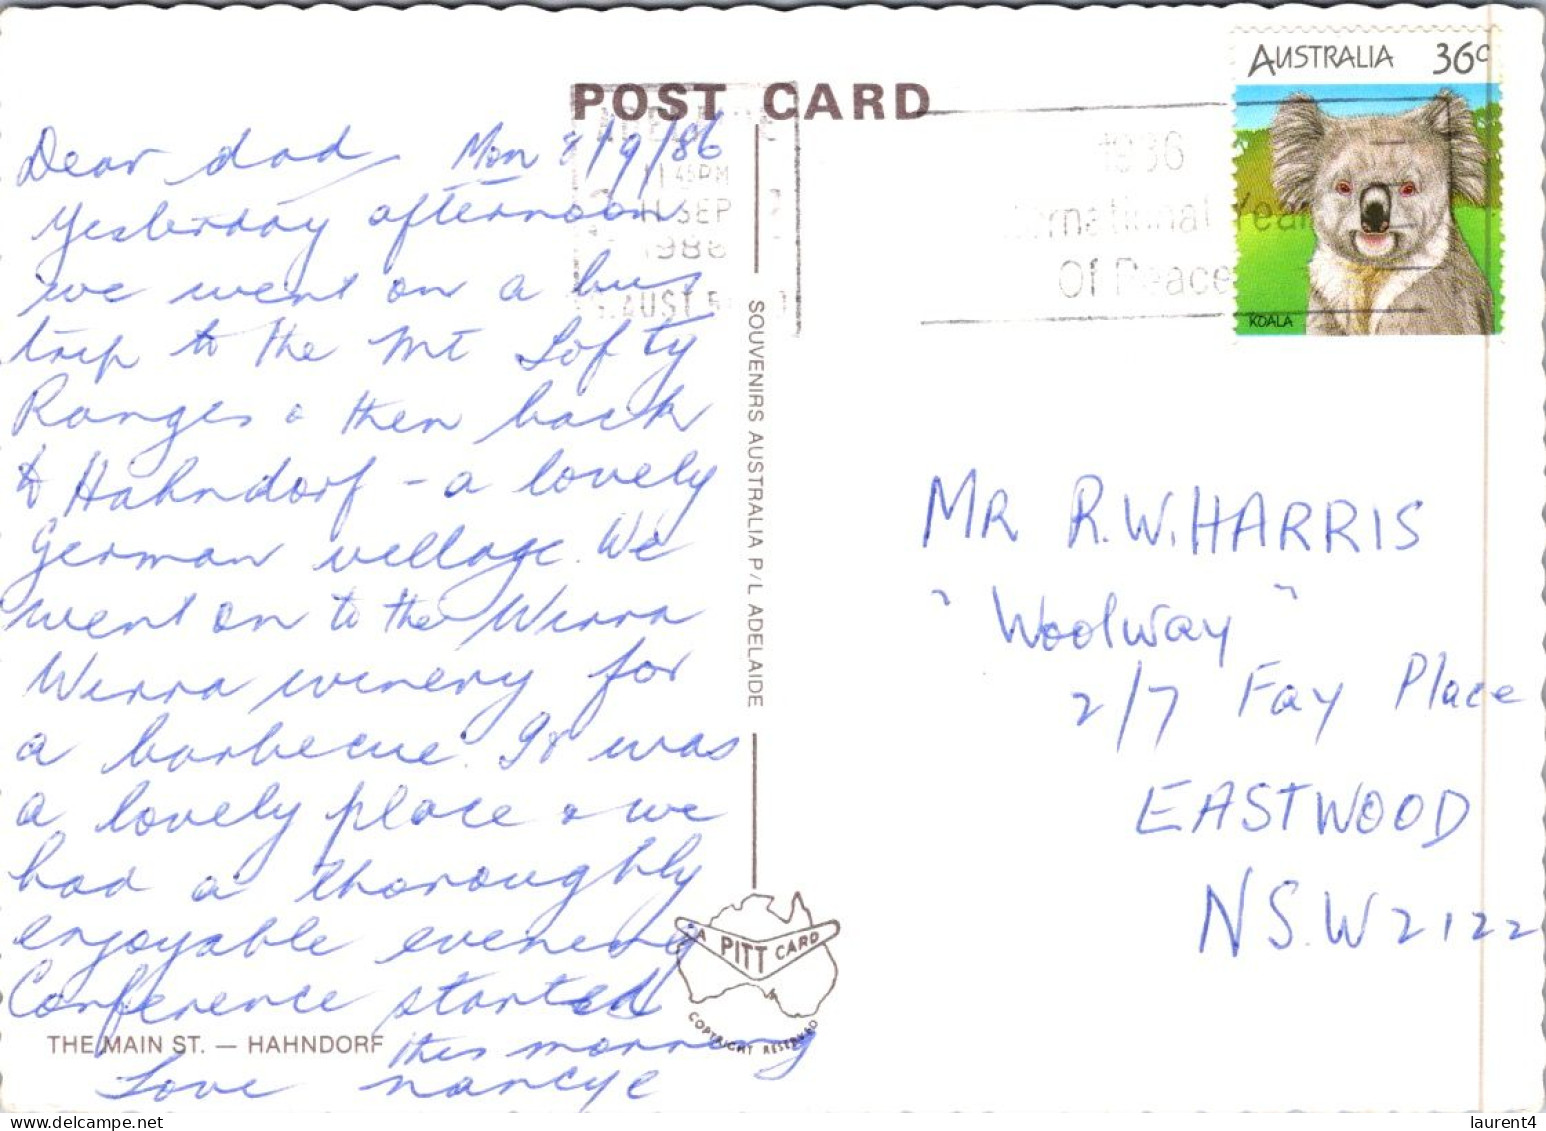 POST CARD
Dear dad Mon 8/9/86
Yesterday afternoon
we went on a bus
trip to the Mt Lofty
Ranges & then back
to Hahndorf - a lovely
German village. We
went on to the Wirra
Wirra winery for
a barbecue. It was
a lovely place & we
had a thoroughly
enjoyable evening
Conference started
this morning
Love Nancye
THE MAIN ST. — HAHNDORF
SOUVENIRS AUSTRALIA P/L ADELAIDE
A PITT CARD
COPYRIGHT RESERVED
11 45PM
11 SEP
1986
S. AUST. 5
1986
International Year
Of Peace
AUSTRALIA 36c
KOALA
MR R.W. HARRIS
"Woolway"
2/7 Fay Place
EASTWOOD
N.S.W 2122
laurent4